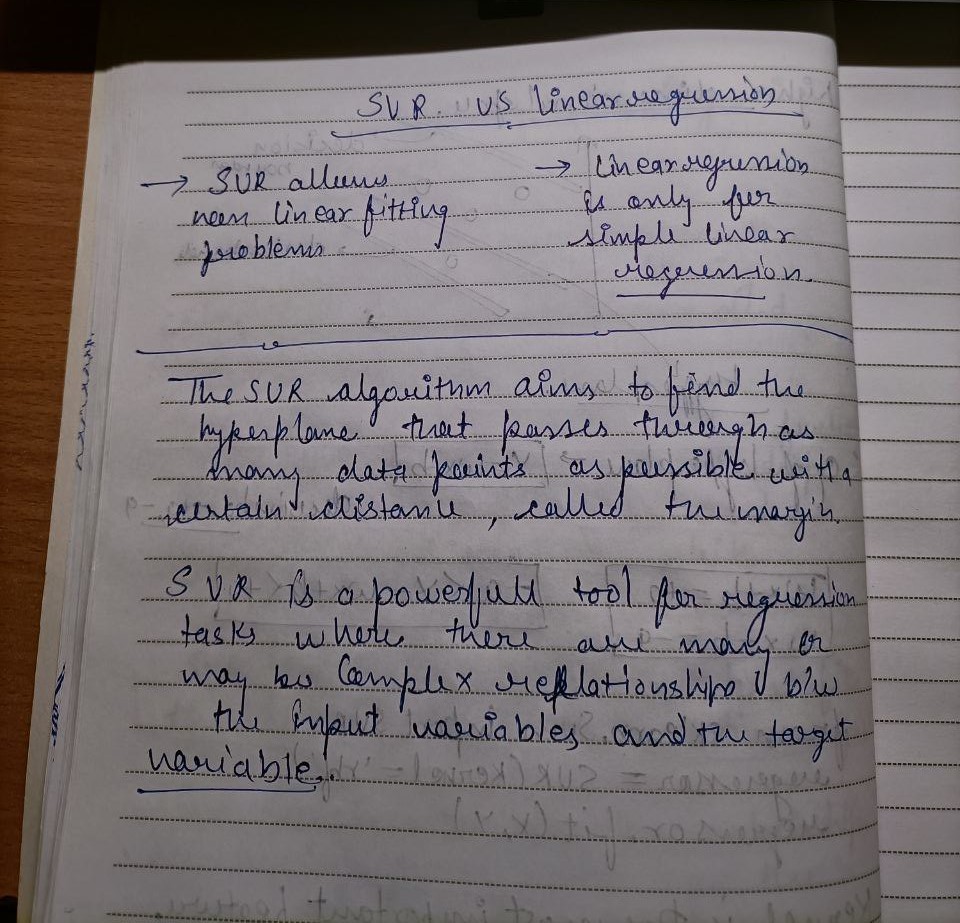 SVR. VS linear regression
→ SVR allows
non linear fitting
problems
→ linear regression
is only for
simple linear
regression.
The SVR algorithm aims to find the
hyperplane that passes through as
many data points as possible with a
certain distance, called the margin.
SVR is a powerfull tool for regression
tasks where there are many or
may be Complex relationships b/w
the input variables and the target
variable.
regressor = SVR(kernel = 'rbf')
regressor.fit(X,y)